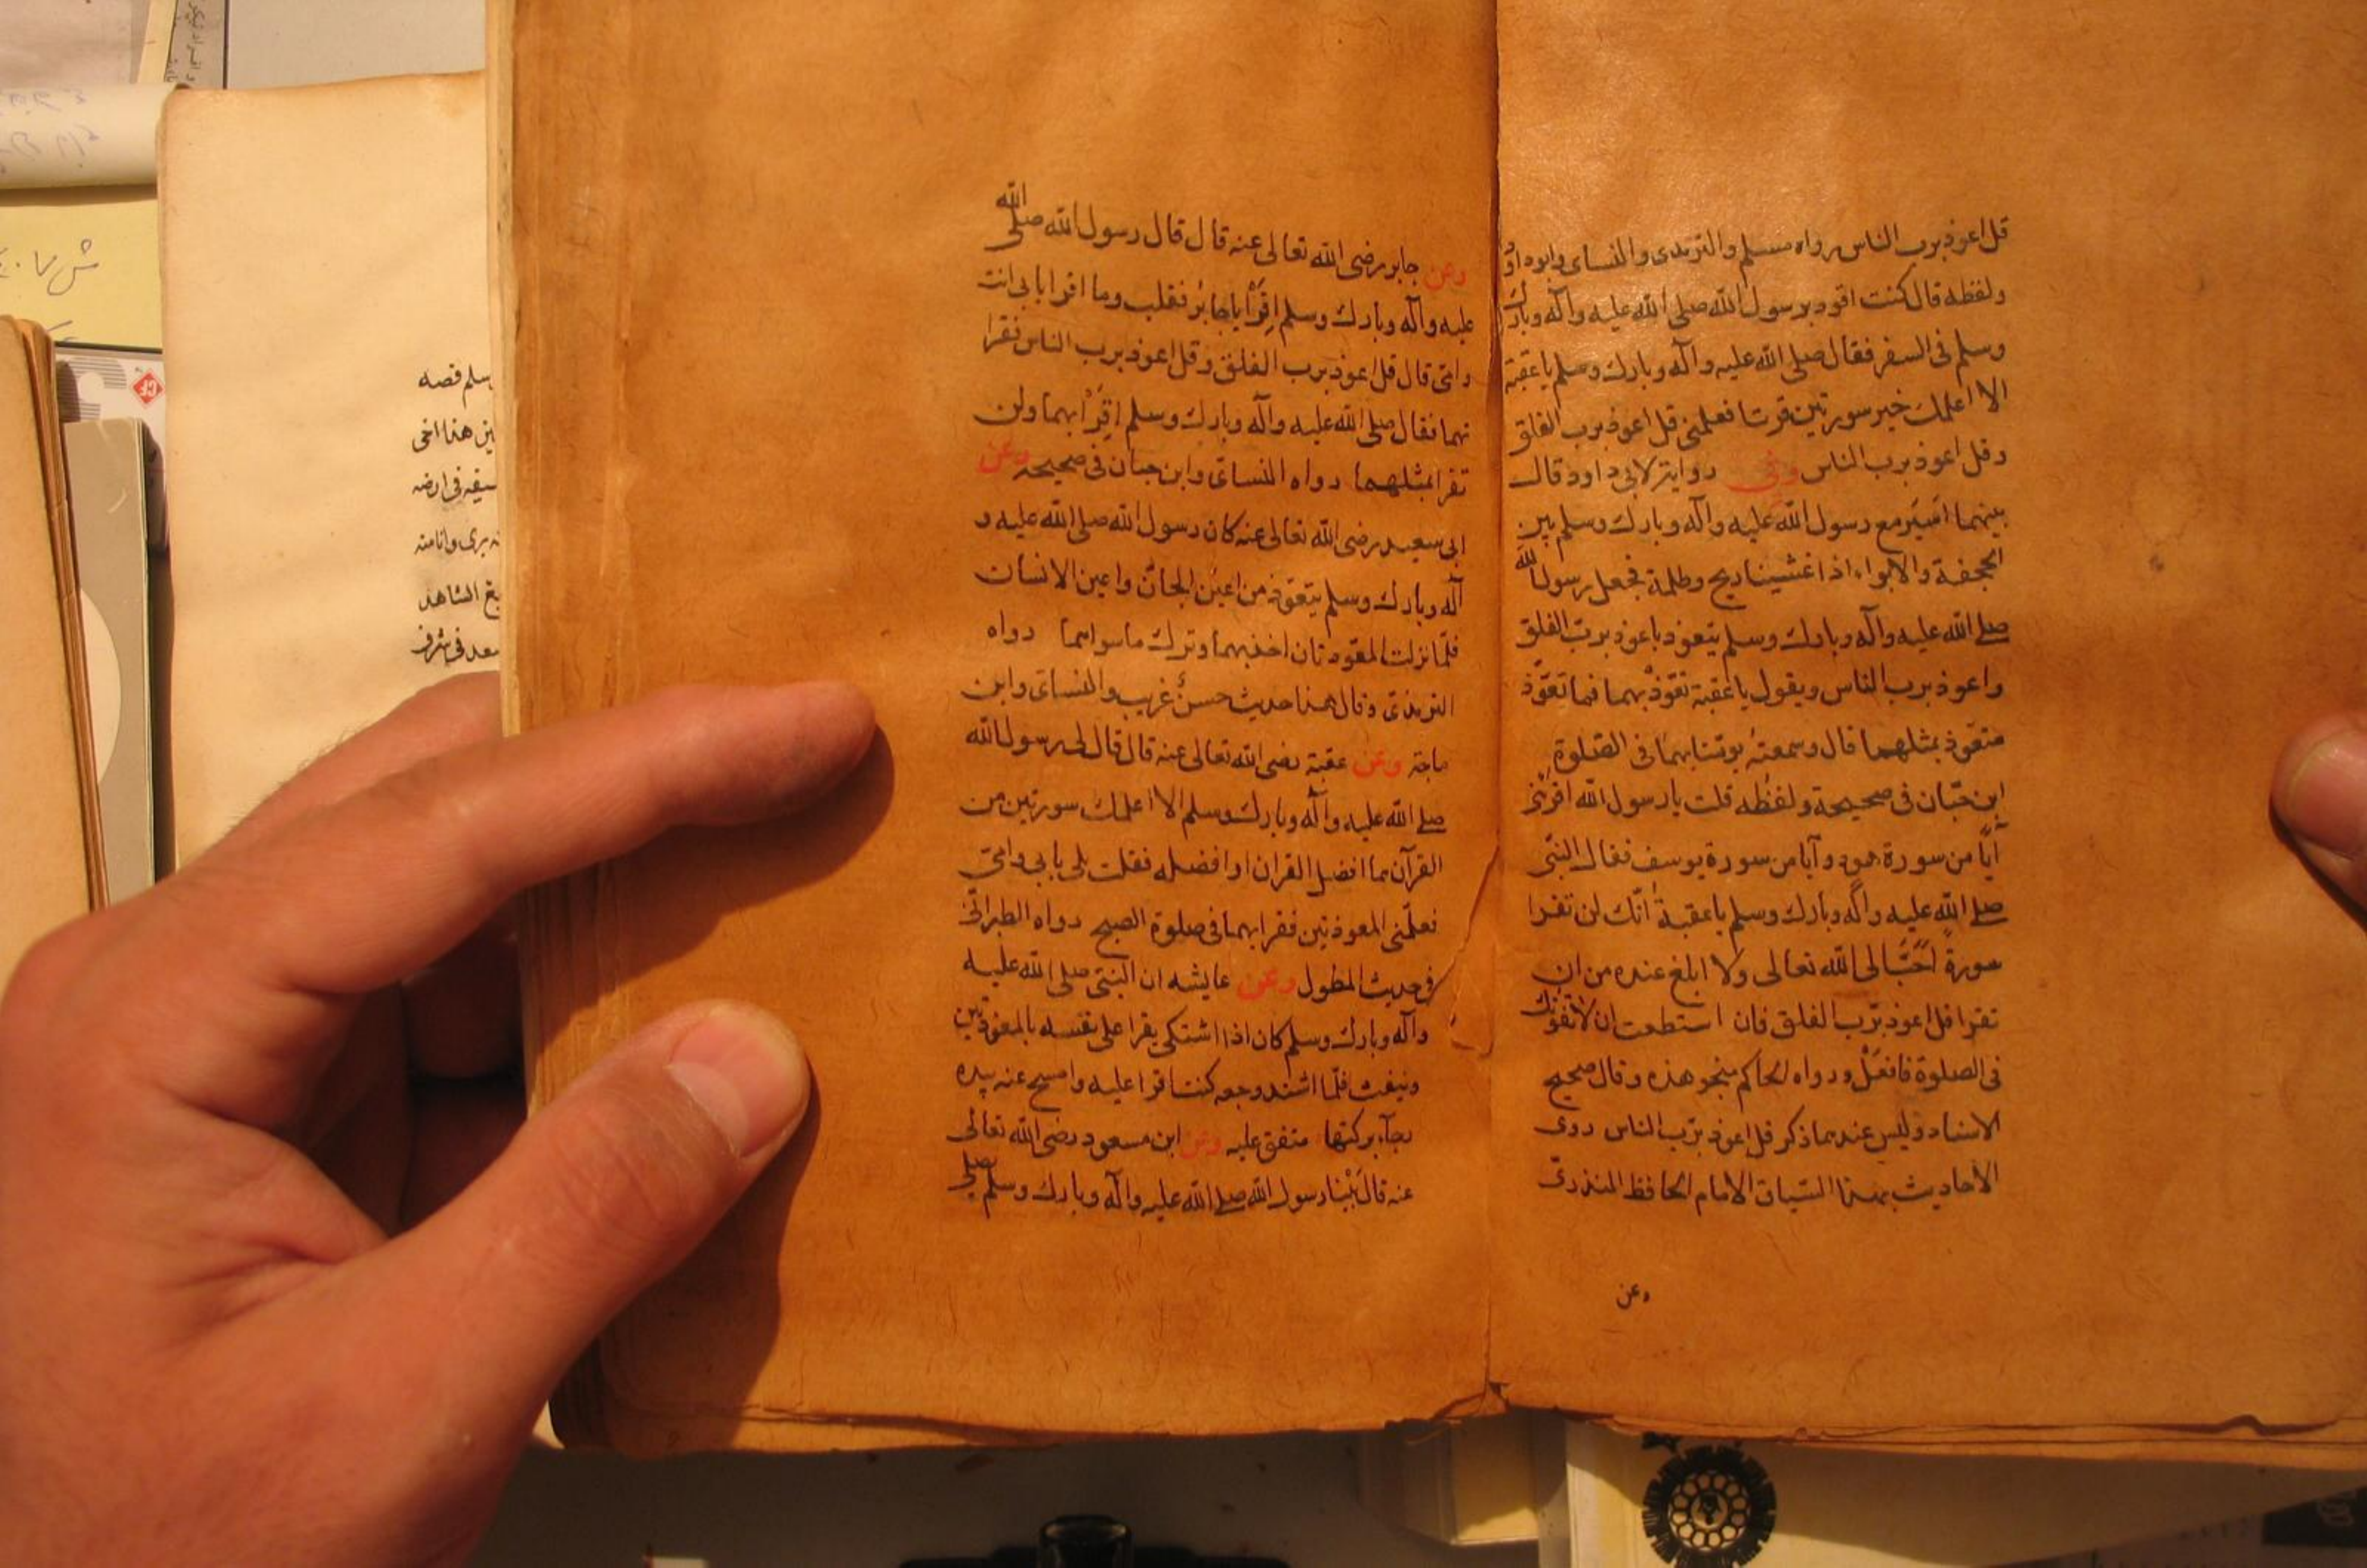 قل اعوذ برب الناس رواه مسلم والترمذى والنساى وابوداود
ولفظه قال كنت اقود برسول الله صلى الله عليه وآله وبارك
وسلم فى السفر فقال صلى الله عليه وآله وبارك وسلم يا عقبة
الا اعلمك خير سورتين قرتا فعلمنى قل اعوذ برب الفلق
وقل اعوذ برب الناس وفى رواية لابى داود قال
بينهما اسير مع رسول الله عليه وآله وبارك وسلم بين
الجحفة والابواء اذا غشيتنا ريح وظلمة فجعل رسول الله
صلى الله عليه وآله وبارك وسلم يتعوذ باعوذ برب الفلق
واعوذ برب الناس ويقول يا عقبة تعوّذ بهما فما تعوّذ
متعوّذ بمثلهما قال وسمعته يومنا بهما فى الصلوة
ابن حبّان فى صحيحة ولفظه قلت يا رسول الله اقرئنى
آياً من سورة هود وآيا من سورة يوسف فقال النبّى
صلى الله عليه وآله وبارك وسلم يا عقبة انّك لن تقرا
سورةً احَبَّ الى الله تعالى ولا ابلغ عنده من ان
تقرا قل اعوذ برّب الفلق فان استطعت ان لا تفوتك
فى الصلوة فافعل ورواه الحاكم بنحو هذه وقال صحيح
الاسناد وليس عندهما ذكر قل اعوذ برّب الناس روى
الاحاديث بهذا السّياق الامام الحافظ المنذرىّ
وعن
وعن جابر رضى الله تعالى عنه قال قال رسول الله صلى الله
عليه وآله وبارك وسلم اقرَأ يا جابرُ فقلب وما اقرا بابى انت
وامّى قال قل اعوذ برب الفلق وقل اعوذ برب الناس فقرا
تهما فقال صلى الله عليه وآله وبارك وسلم اقرَأ بهما ولن
تقرا بمثلهما رواه النساىّ وابن حبان فى صحيحه وعن
ابى سعيد رضى الله تعالى عنه كان رسول الله صلى الله عليه و
آله وبارك وسلم يتعوّذ من اعين الجانّ واعين الانسان
فلمّا نزلت المعّوذتان اخذ بهما وترك ما سواهما رواه
الترمذىّ وقال هذا حديث حسنٌ غريب والنسائى وابن
ماجة وعن عقبة رضى الله تعالى عنه قال قال لى رسول الله
صلى الله عليه وآله وبارك وسلم الا اعلمك سورتين من
القرآن هما افضل القران او افضله فقلت بلى بابى وامّى
فعلّمنى المعوذتين فقرا بهما فى صلوة الصبح رواه الطبرانّى
فى حديث المطول وعن عايشه ان النبّى صلى الله عليه
وآله وبارك وسلم كان اذا اشتكى يقرا على نفسه بالمعوذتين
وينفث فلمّا اشتد وجعه كنت اقرا عليه وامسح عنه بيده
رجآء بركتها متفق عليه وعن ابن مسعود رضى الله تعالى
عنه قال بَيْنا رسول الله صلى الله عليه وآله وبارك وسلم يصلى
سلم قصه
هذا اخى
فى ارضه
برى وانا منه
الشاهد
سعد فى شرف